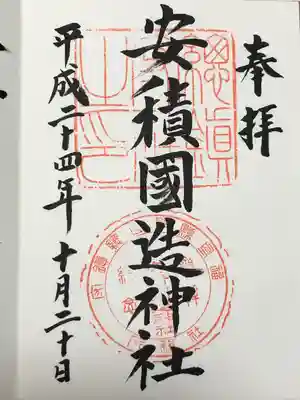 奉拝
安積國造神社
平成二十四年十月二十日